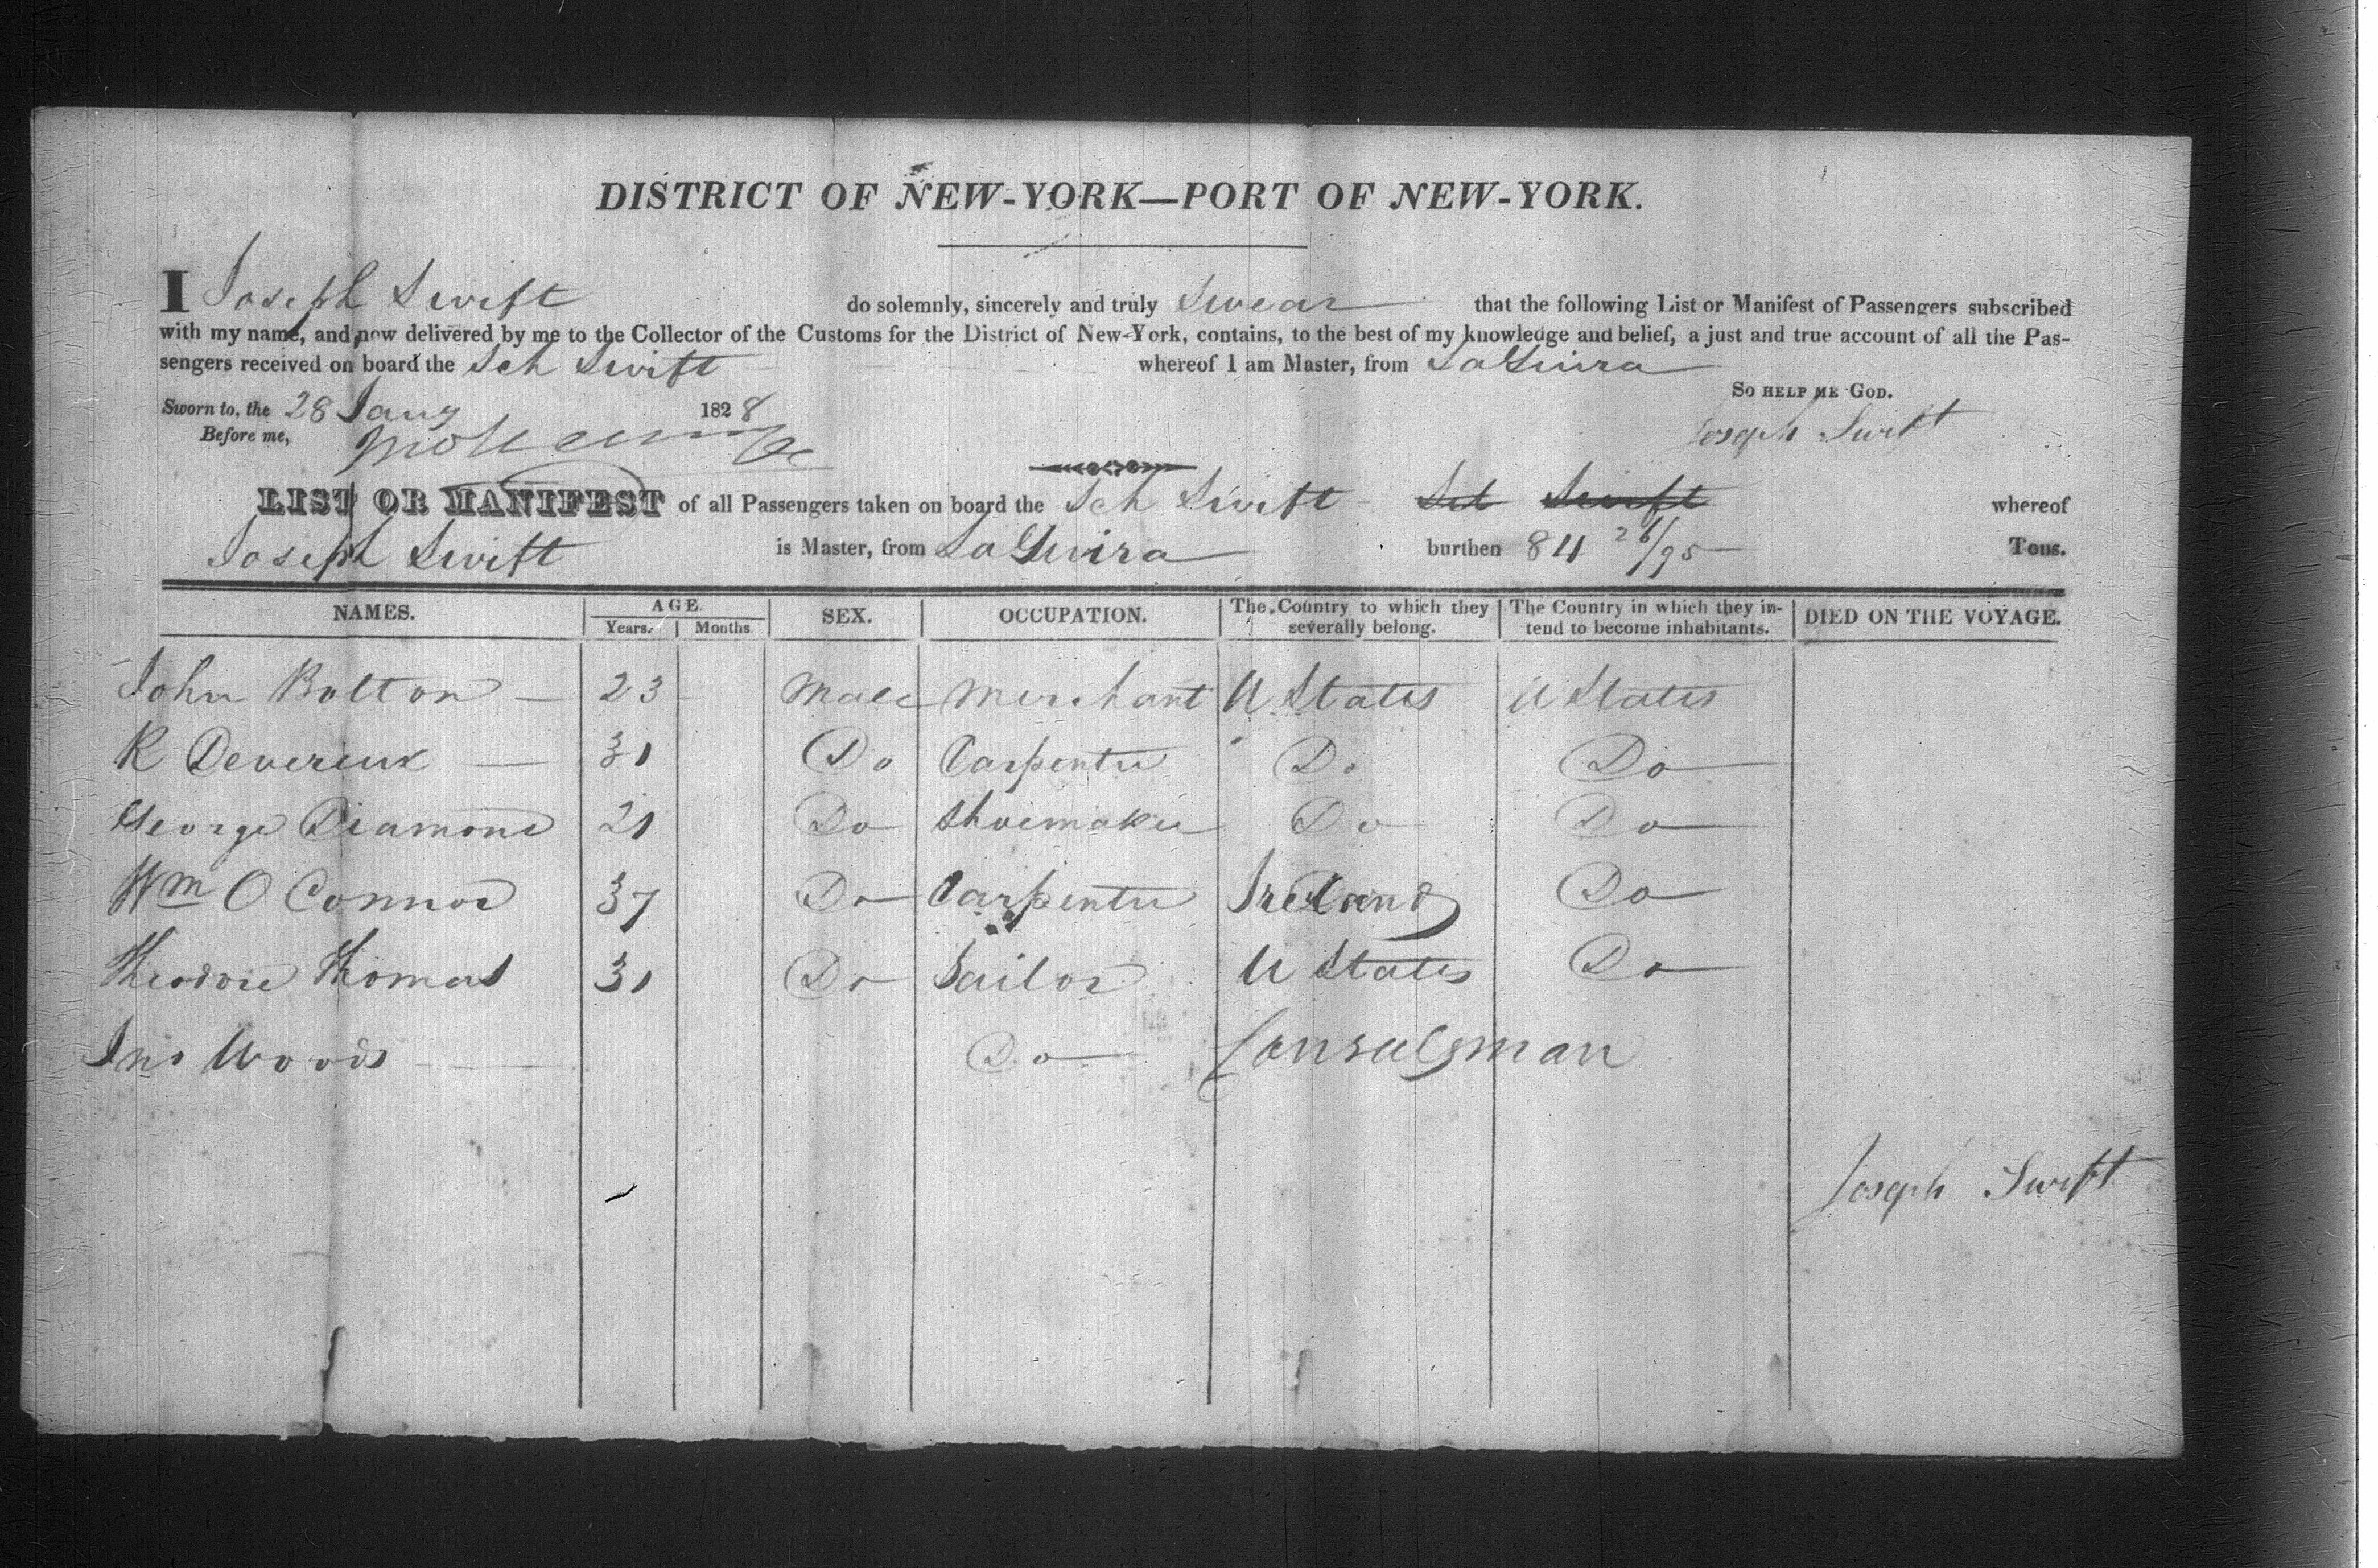 DISTRICT OF NEW-YORK—PORT OF NEW-YORK.
I Joseph Swift do solemnly, sincerely and truly Swear that the following List or Manifest of Passengers subscribed
with my name, and now delivered by me to the Collector of the Customs for the District of New-York, contains, to the best of my knowledge and belief, a just and true account of all the Pas-
sengers received on board the Sch Swift whereof I am Master, from LaGuira
SO HELP ME GOD.
Sworn to, the 28 Jany 1828 Joseph Swift
Before me,
LIST OR MANIFEST of all Passengers taken on board the Sch Swift Sch Swift whereof
Joseph Swift is Master, from LaGuira burthen 84 26/95 Tons.
NAMES. AGE. Years. Months. SEX. OCCUPATION. The Country to which they severally belong. The Country in which they in-tend to become inhabitants. DIED ON THE VOYAGE.
John Bolton — 23 Male Merchant U States U States
R Devereux — 31 Do Carpenter Do Do
George Diamond 21 Do Shoemaker Do Do
Wm O Connor 37 Do Carpenter Ireland Do
Theodore Thomas 31 Do Sailor U States Do
Jno Woods — Do Consulsman
Joseph Swift